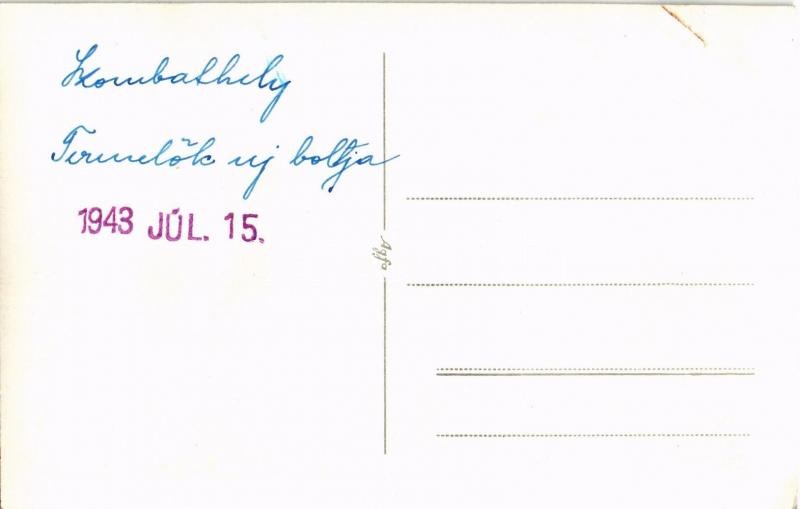 Szombathely
Termelők uj boltja
1943 JÚL. 15.
Agfa